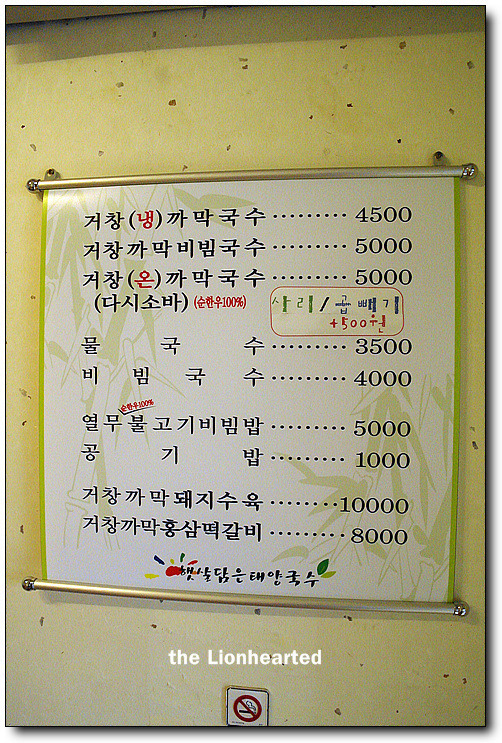 거창(냉)까막국수 ········· 4500
거창까막비빔국수 ········· 5000
거창(온)까막국수 ········· 5000
(다시소바) (순한우100%)
사리/곱빼기
+500원
물국수 ········· 3500
비빔국수 ········· 4000
순한우100%
열무불고기비빔밥 ········· 5000
공기밥 ········· 1000
거창까막돼지수육 ·········10000
거창까막홍삼떡갈비 ········· 8000
햇살닮은태양국수
the Lionhearted